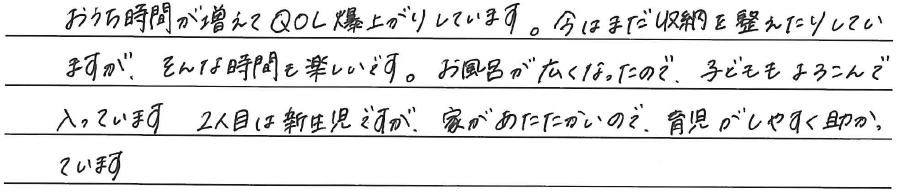 おうち時間が増えてQOL爆上がりしています。今はまだ収納を整えたりしてい
ますが、そんな時間も楽しいです。お風呂が広くなったので、子どももよろこんで
入っています　2人目は新生児ですが、家があたたかいので、育児がしやすく助かっ
ています